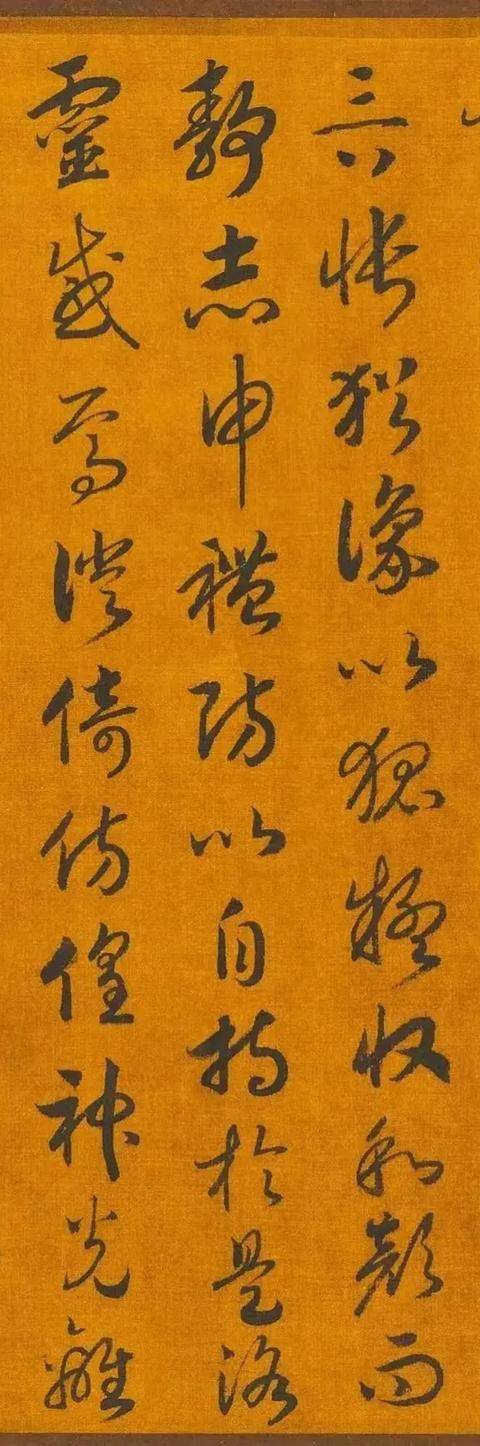 言悵猶豫以狐疑收和顏而
靜志申禮防以自持於是洛
靈感焉徙倚彷徨神光離